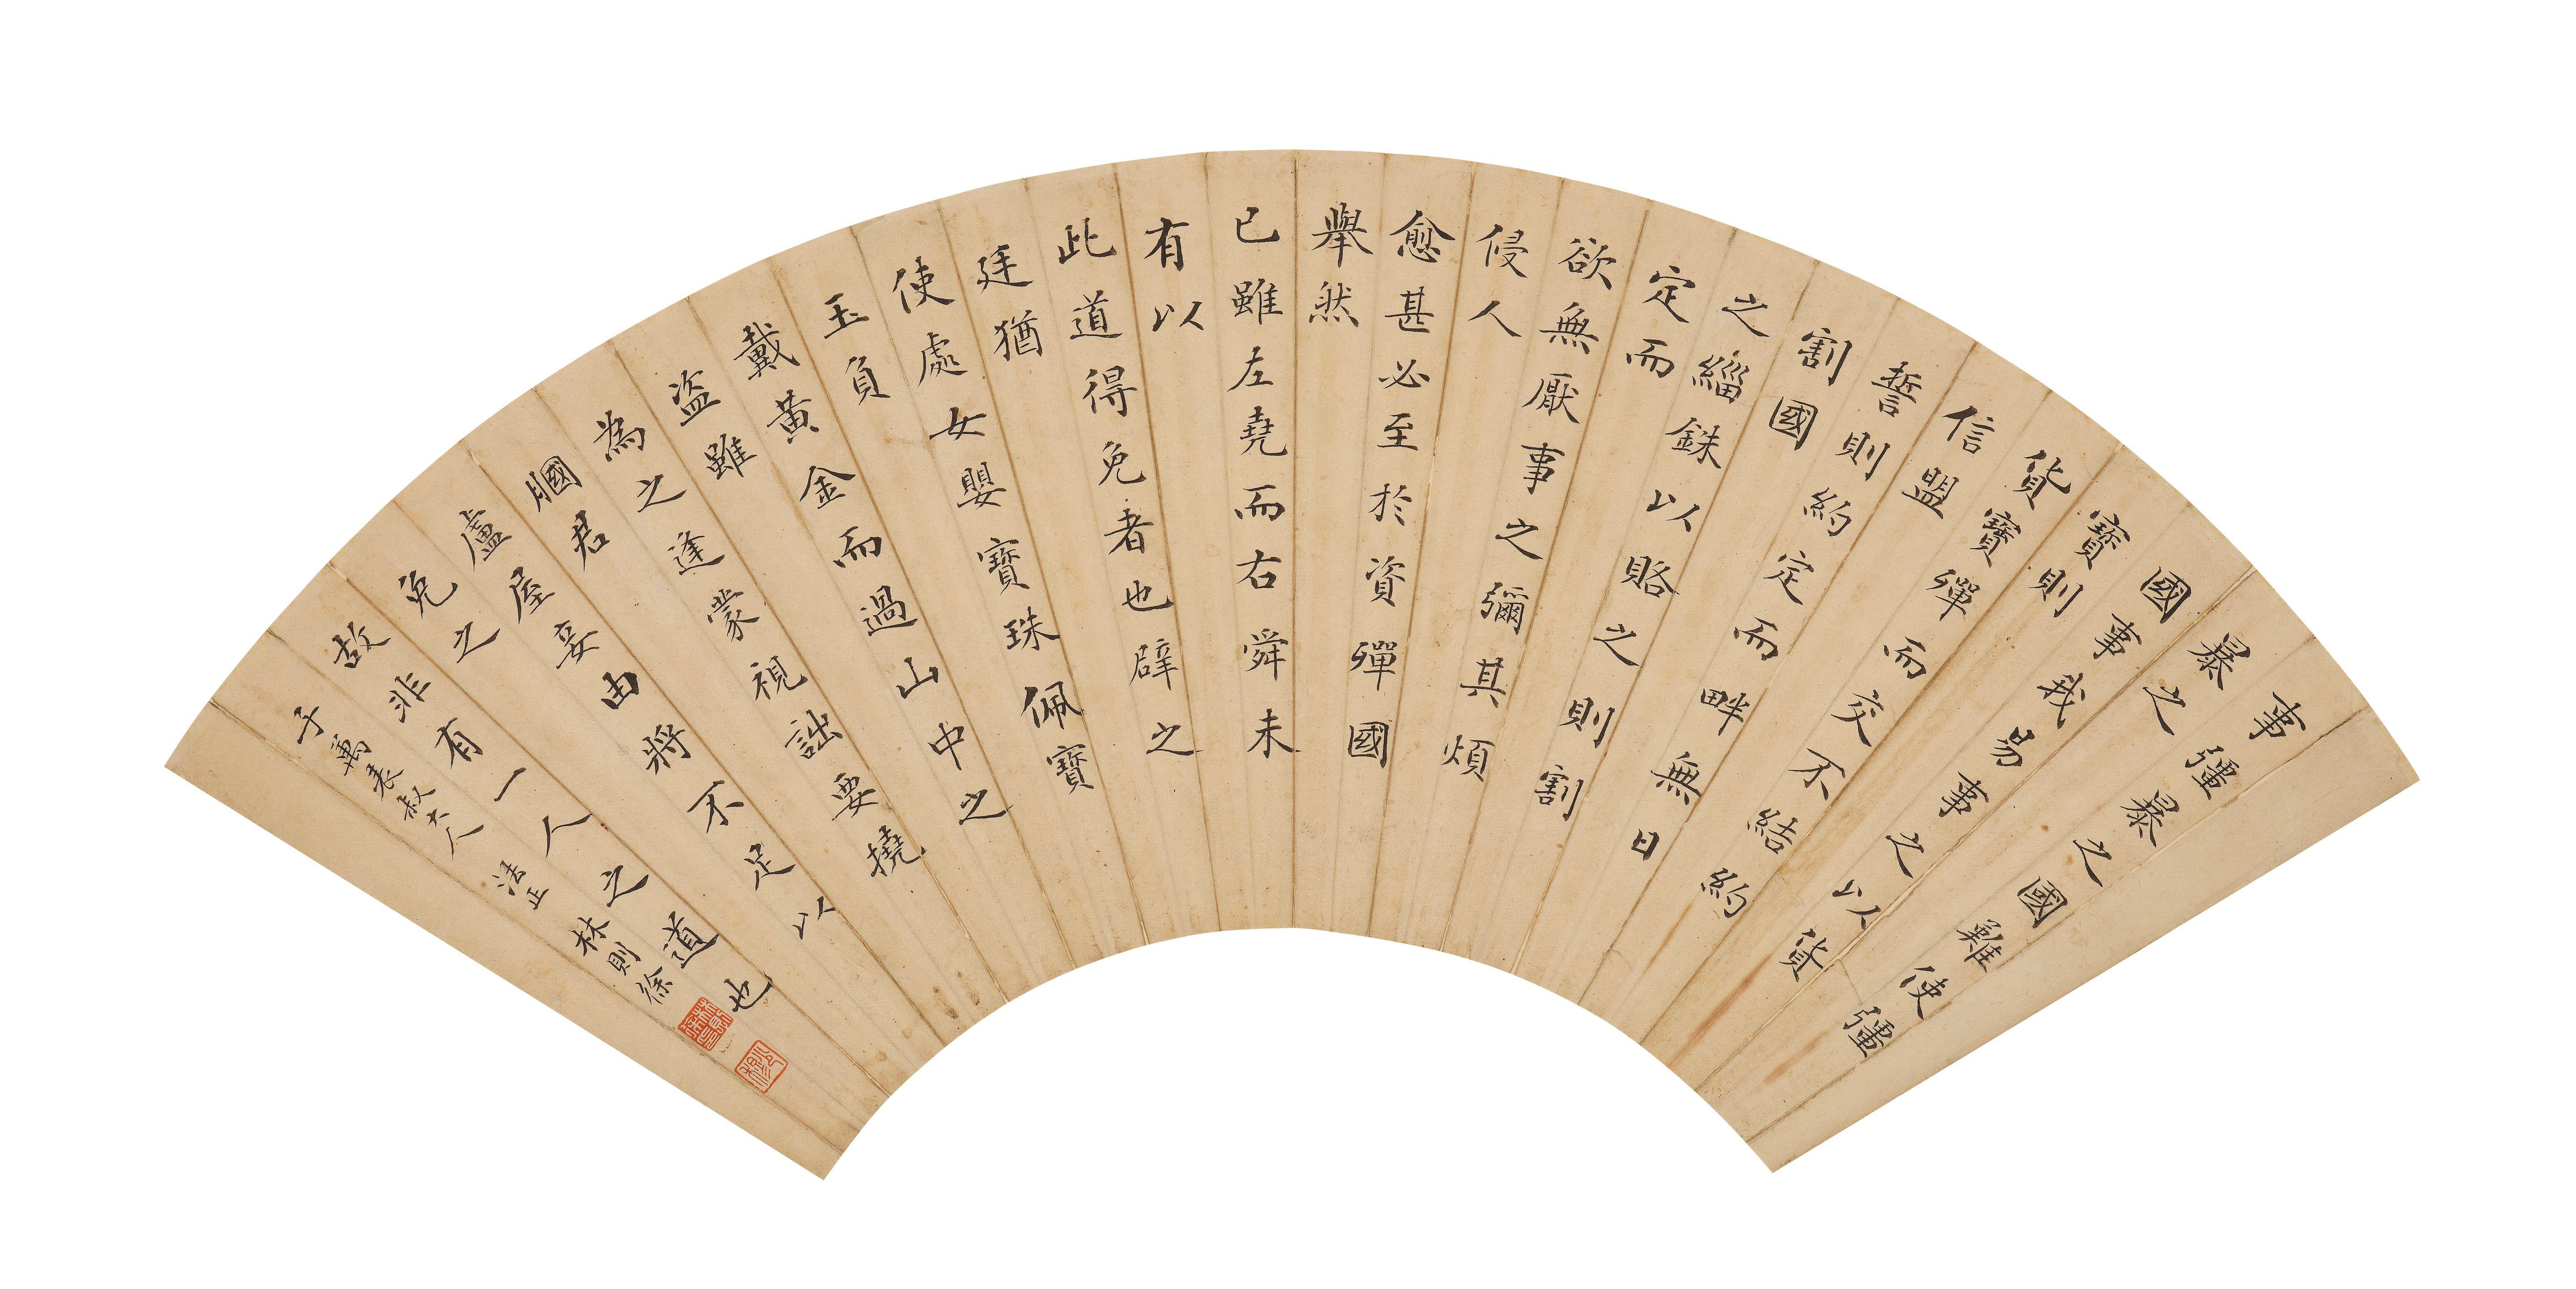 事彊暴之國難使彊
暴之
國事我易事之以貨
寶則
貨寶彈而交不結約
信盟
誓則約定而畔無日
割國
之緇銖以賂之則割
定而
欲無厭事之彌其煩
侵人
愈甚必至於資彈國
舉然
已雖左堯而右舜未
有以
此道得免者也辟之
廷猶
使處女嬰寶珠佩寶
玉負
戴黃金而過山中之
盜雖
為之逢蒙視詘要撓
膕君
盧屋妾由將不足以
免之
故非有一人之道也
子萬表叔大人 法正 林則徐